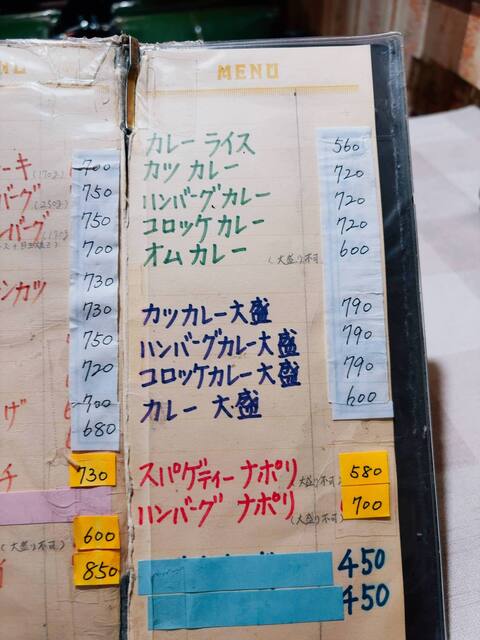 キ (170g) 700
バーグ (250g) 750
ンバーグ 750
700
ンカツ 730
730
750
720
げ 700
680
チ 730
(大盛り不可) 600
850
MENU
カレーライス 560
カツカレー 720
ハンバーグカレー 720
コロッケカレー 720
オムカレー (大盛り不可 600
カツカレー大盛 790
ハンバーグカレー大盛 790
コロッケカレー大盛 790
カレー 大盛 600
スパゲティーナポリ (大盛り不可) 580
ハンバーグ ナポリ (大盛り不可) 700
450
450